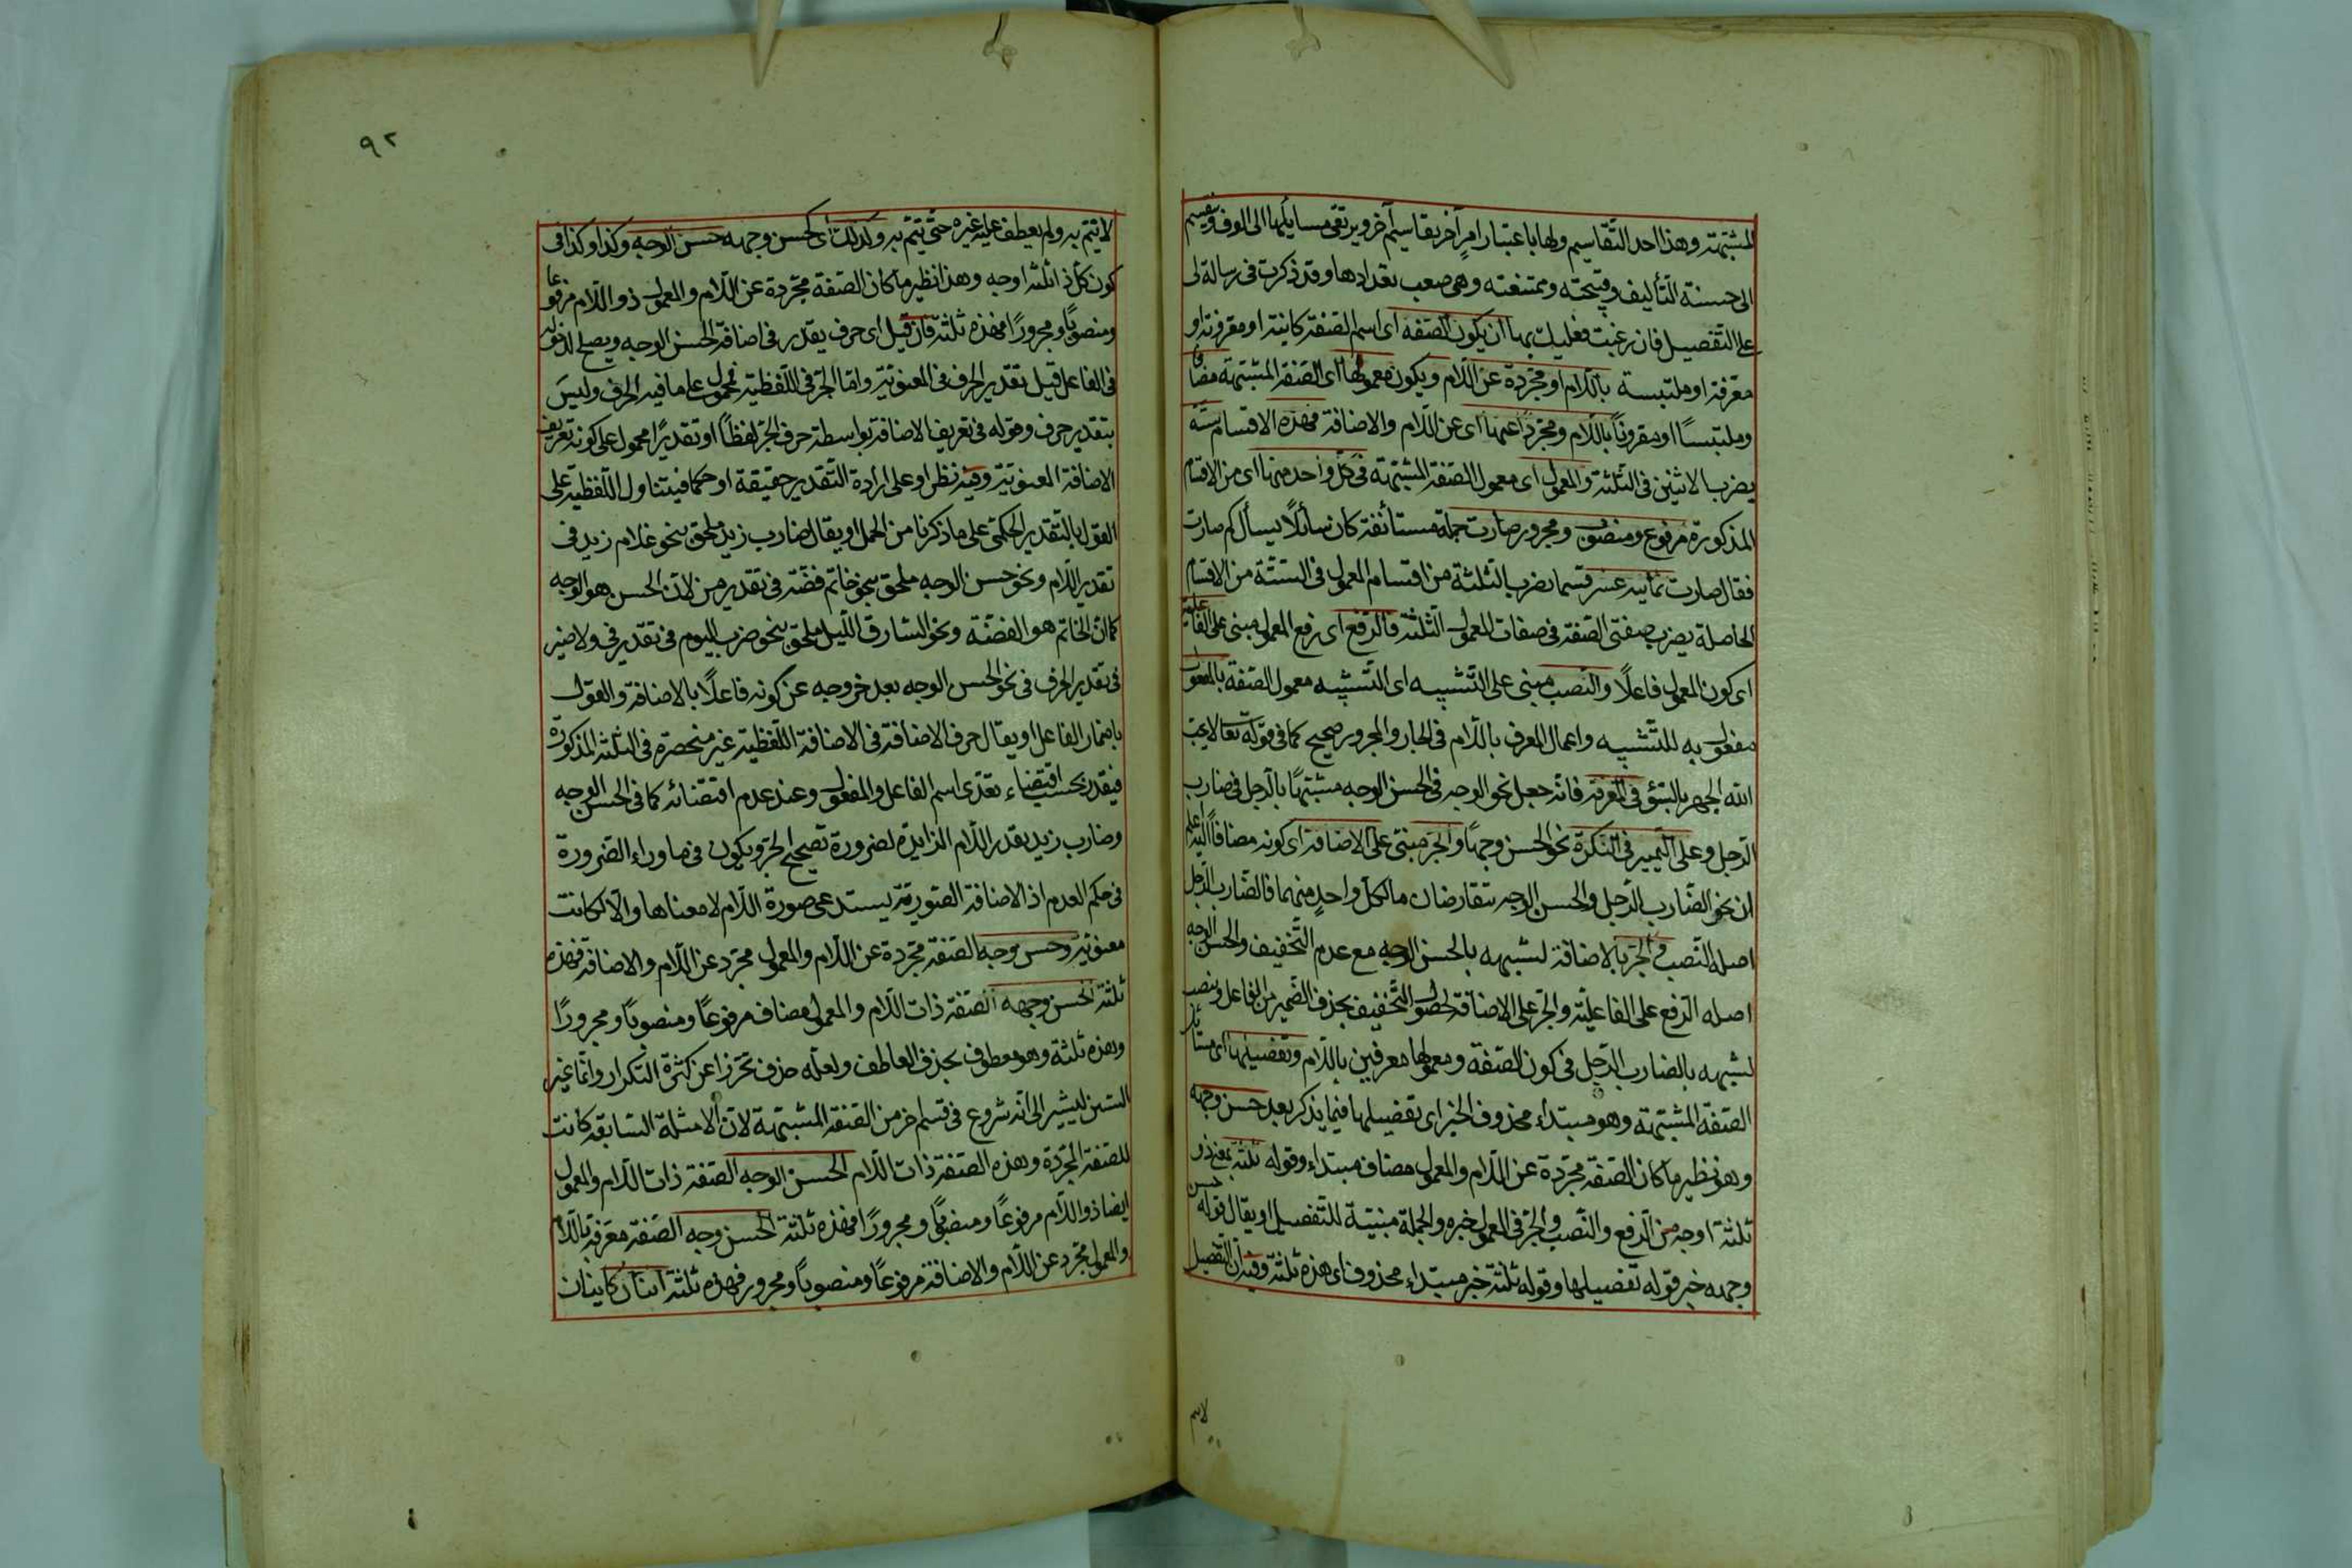 المشبهة وهذا احد التقاسيم ولها باعتبار امر آخر تقاسيم آخر ويرتقى مسايلها الى الوف وتقسيم
الى حسنة التأليف وقبيحته وممتنعته وهى صعب تعدادها وقد ذكرت فى رسالة لى
على التفصيل فان رغبت فعليك بها ان يكون الصفة اى اسم الصفة كاينة او مقرونة او
معرفة او ملتبسة باللام او مجردة عن اللام ويكون معمولها اى الصفة المشبهة مضافا
وملتبسا او مقرونا باللام ومجردا عنهما اى عن اللام والاضافة فهذه الاقسام ستة
يضرب الاثنين فى الثلثة والمعمول اى معمول الصفة المشبهة فى كل واحد منها اى من الاقسام
المذكورة مرفوع ومنصوب ومجرور صارت جملة مستأنفة كان سائلا يسأل كم صارت
فقال صارت ثمانية عشر قسما بضرب الثلثة من اقسام المعمول فى الستة من الاقسام
الحاصلة بضرب صفتى الصفة فى صفات المعمول الثلثة فالرفع اى رفع المعمول مبنى على الفاعلية
اى كون المعمول فاعلا والنصب مبنى على التشبيه اى التشبيه معمول الصفة بالمفعول
مفعول به للتشبيه واعمال المعرف باللام فى الجار والمجرور صحيح كما فى قوله تعالى لا يحب
الله الجهر بالسوء فى المعرفة فانه جعل نحو الوجه فى الحسن الوجه مشبها بالرجل فى ضارب
الرجل وعلى التمييز فى النكرة نحو الحسن وجها والجر مبنى على الاضافة اى كونه مضافا اليه اعلم
ان نحو الضارب الرجل والحسن الوجه تتقارضان ما لكل واحد منهما فالضارب الرجل
اصله النصب والجر بالاضافة لشبهه بالحسن الوجه مع عدم التخفيف والحسن الوجه
اصله الرفع على الفاعلية والجر على الاضافة لحصول التخفيف بحذف الضمير من الفاعل ونصب
لشبهه بالضارب الرجل فى كون الصفة ومعمولها معرفين باللام وتفصيلها اى مسائل
الصفة المشبهة وهو مبتداء محذوف الخبر اى تفصيلها فيما يذكر بعد حسن وجهه
وهو نظير ما كان الصفة مجردة عن اللام والمعمول مضاف مبتداء وقوله ثلثة بمعنى ذو
ثلثة اوجه من الرفع والنصب والجر فى المعمول خبره والجملة مبنية للتفصيل او يقال قوله حسن
وجهه خبر قوله تفصيلها وقوله ثلثة خبر مبتداء محذوف اى هذه ثلثة وفيه ان التفصيل
لا يتم
٩٢
لا يتم به ولم يعطف عليه غيره حتى يتم به وكذلك اى كحسن وجهه حسن الوجه وكذا وكذا فى
كون كل ذا ثلثه اوجه وهذا نظير ما كان الصفة مجردة عن اللام والمعمول ذو اللام مرفوعا
ومنصوبا ومجرورا فهذه ثلثة فان قيل اى حرف يقدر فى اضافة الحسن الوجه ويصلح لدخوله
فى الفاعل قيل تقدير الحرف فى المعنوية واما الجر فى اللفظية محمول على ما فيه الحرف وليس
بتقدير حرف وقوله فى تعريف الاضافة بواسطة حرف الجر لفظا او تقديرا محمول على كونه تعريف
الاضافة المعنوية وفيه نظر او على ارادة التقدير حقيقة او حكما فيتناول اللفظية على
القول بالتقدير الحكمى على ما ذكرنا من الحمل او يقال ضارب زيد ملحق بنحو غلام زيد فى
تقدير اللام ونحو حسن الوجه ملحق بنحو خاتم فضة فى تقدير من لان الحسن هو الوجه
كما ان الخاتم هو الفضة ونحو السارق الليل ملحق بنحو ضرب اليوم فى تقدير فى ولا ضير
فى تقدير الحرف فى نحو الحسن الوجه بعد خروجه عن كونه فاعلا بالاضافة والقول
باضمار الفاعل او يقال حرف الاضافة فى الاضافة اللفظية غير منحصرة فى الثلثة المذكورة
فيقدر بحسب اقتضاء تعدى اسم الفاعل والمفعول وعند عدم اقتضائه كما فى الحسن الوجه
وضارب زيد يقدر اللام الزايدة لضرورة تصحيح الجر ويكون فى ما وراء الضرورة
فى حكم العدم اذ الاضافة الصورية يستدعى صورة اللام لا معناها والا لكانت
معنوية وحسن وجه الصفة مجردة عن اللام والمعمول مجرد عن اللام والاضافة فهذه
ثلثة الحسن وجهه الصفة ذات اللام والمعمول مضاف مرفوعا ومنصوبا ومجرورا
وهذه ثلثة وهو معطوف بحذف العاطف ولعله حذف تحرزا عن كثرة التكرار وانما غير
السنن ليشير الى انه شروع فى قسم اخر من الصفة المشبهة لان الامثلة السابقة كانت
للصفة المجردة وهذه الصفة ذات اللام الحسن الوجه الصفة ذات اللام والمعمول
ايضا ذو اللام مرفوعا ومنصوبا ومجرورا فهذه ثلثة الحسن وجه الصفة معرفة باللام
والمعمول مجرد عن اللام والاضافة مرفوعا ومنصوبا ومجرور فهذه ثلثة اثنان كاينان